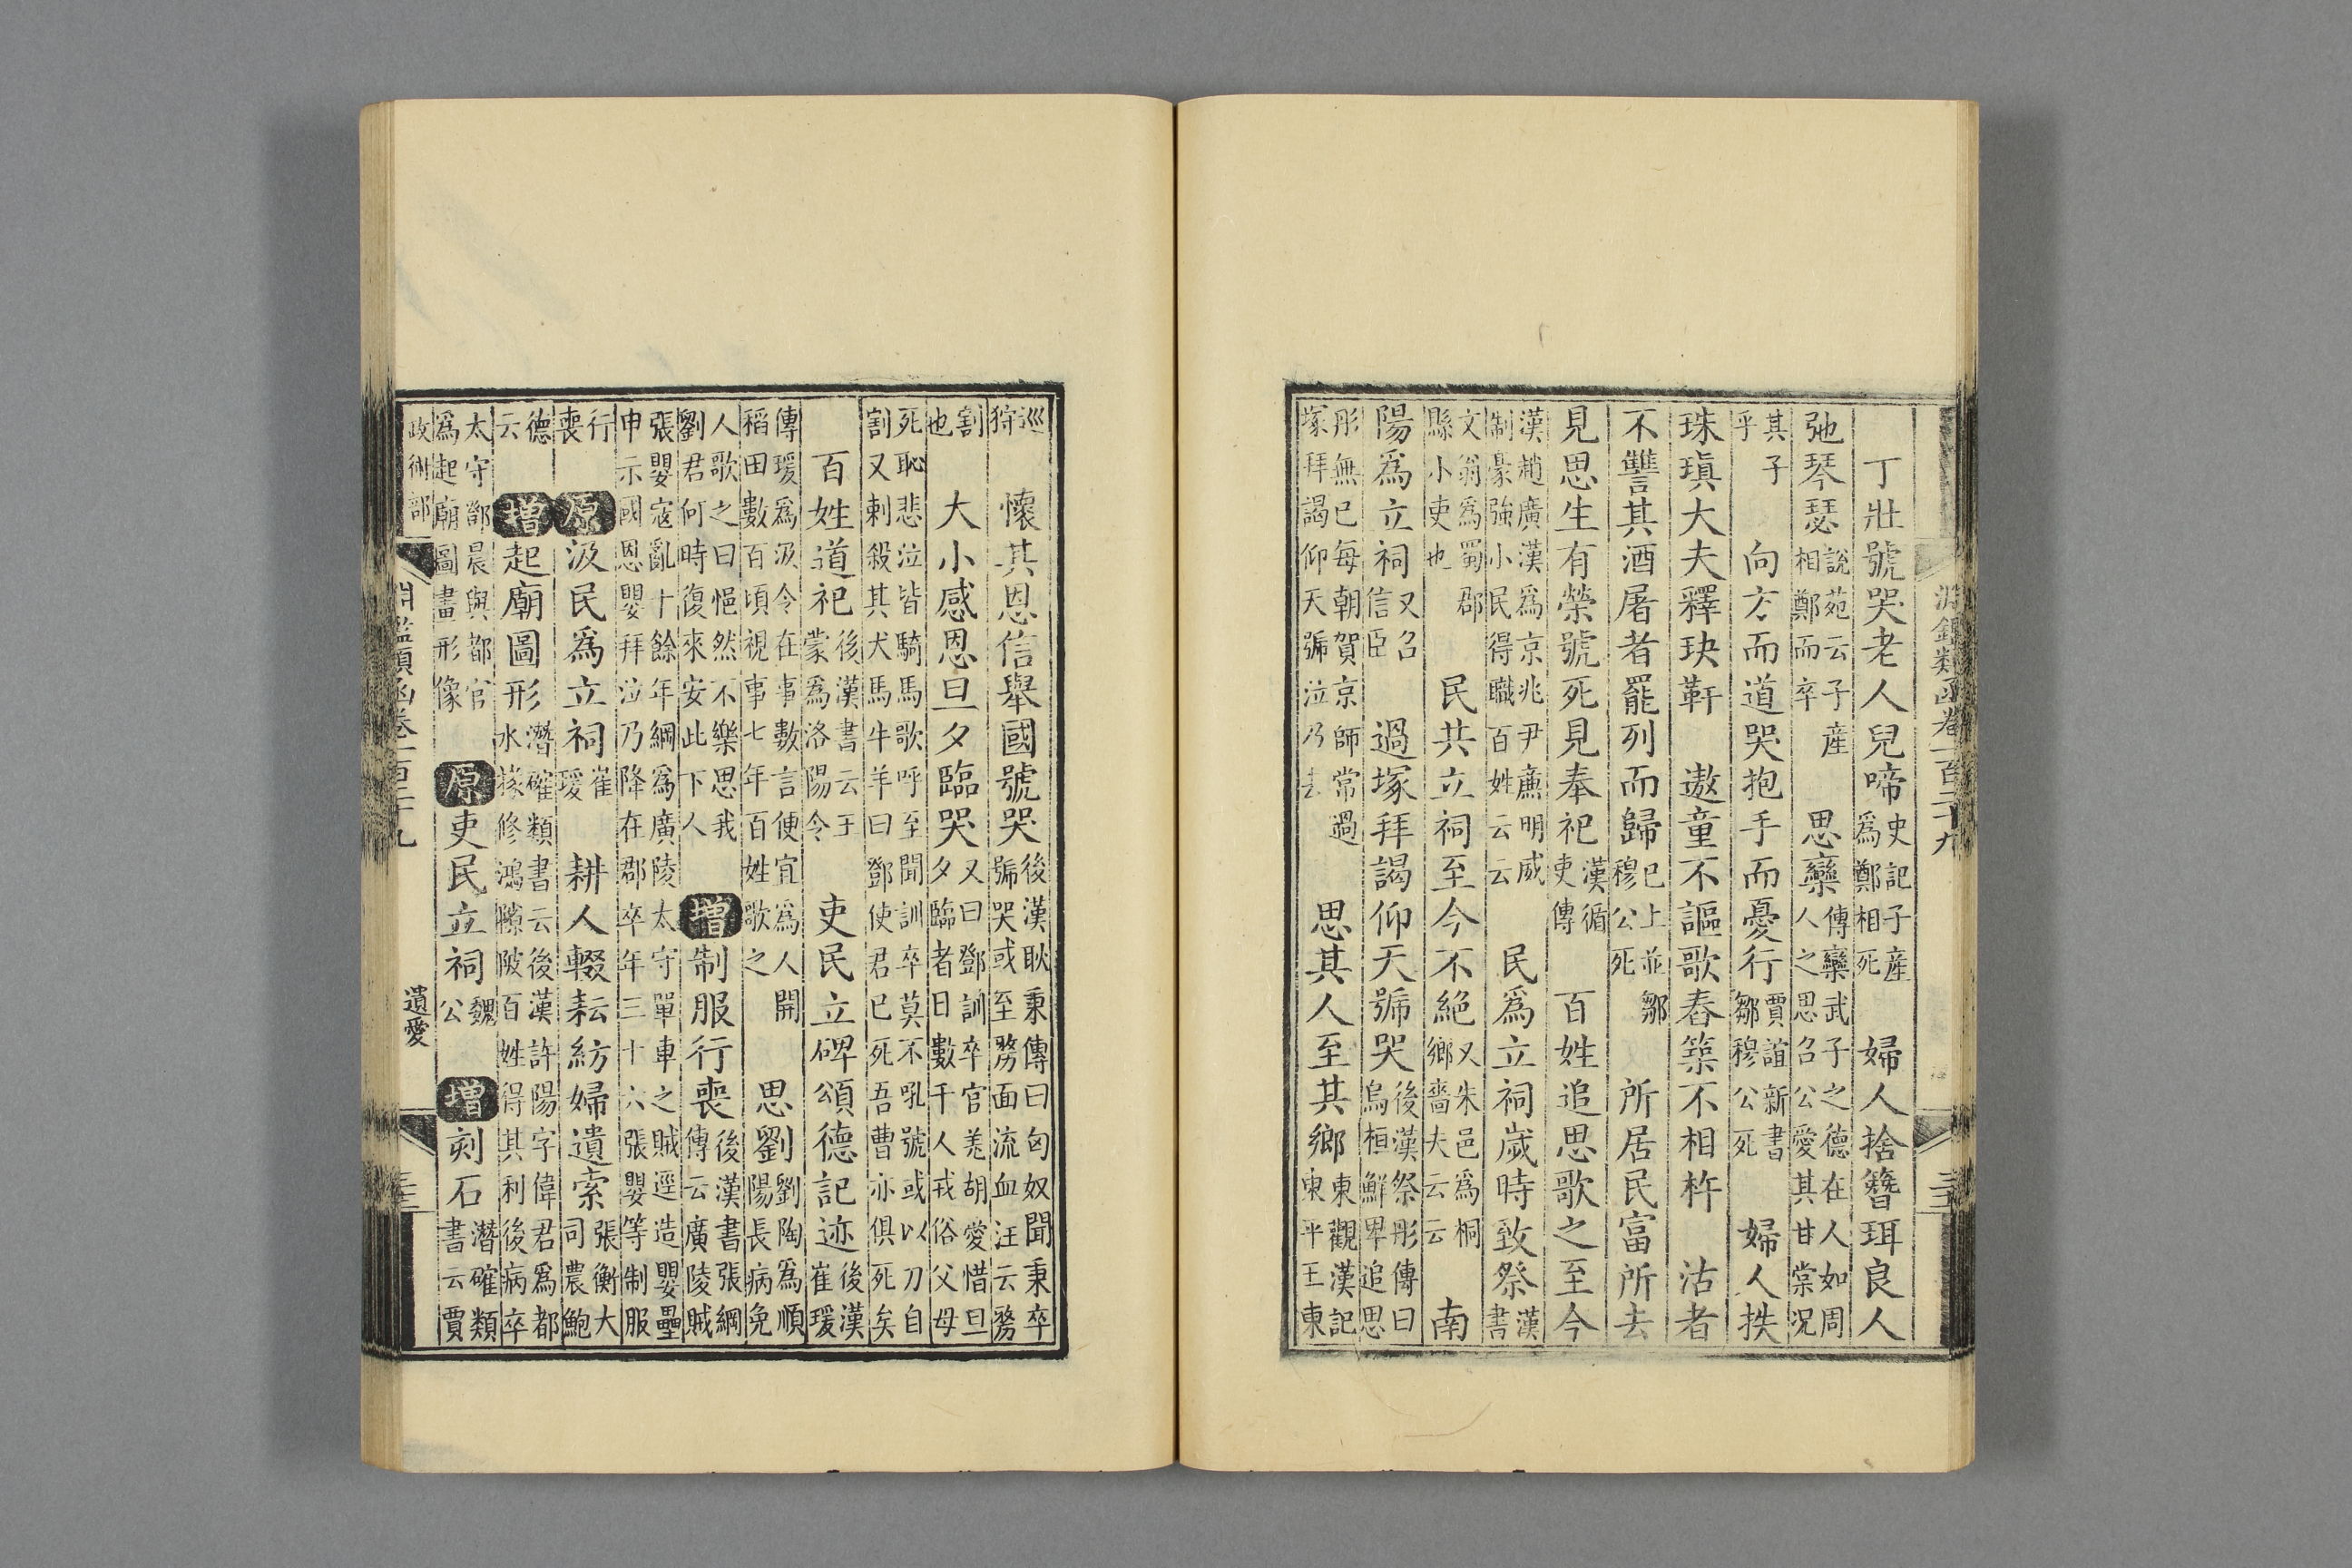 淵鑑類函卷一百二十九
丁壯號哭老人兒啼史記子產爲鄭相死婦人捨簪珥良人
弛琴瑟說苑云子產相鄭而卒思欒傳欒武子之德在人如周人之思召公愛其甘棠況
其子乎向方而道哭抱手而憂行賈誼新書鄒穆公死婦人抶
珠瑱大夫釋玦靬遨童不謳歌舂築不相杵沽者
不讐其酒屠者罷列而歸已上並鄒穆公死所居民富所去
見思生有榮號死見奉祀漢循吏傳百姓追思歌之至今
漢趙廣漢爲京兆尹廉明威制豪強小民得職百姓云云民爲立祠歲時致祭漢書
文翁爲蜀郡縣小吏也民共立祠至今不絕又朱邑爲桐鄉嗇夫云云南
陽爲立祠又召信臣過塚拜謁仰天號哭後漢祭彤傳曰烏桓鮮卑追思
彤無已每朝賀京師常過塚拜謁仰天號泣乃去思其人至其鄉東觀漢記東平王東
巡狩懷其恩信舉國號哭後漢耿秉傳曰匈奴聞秉卒號哭或至剺面流血汪云剺
割也大小感恩旦夕臨哭又曰鄧訓卒官羌胡愛惜旦夕臨者日數千人戎俗父母
死恥悲泣皆騎馬歌呼至聞訓卒莫不吼號或以刀自割又刺殺其犬馬牛羊曰鄧使君已死吾曹亦俱死矣
百姓道祀後漢書云王蒙爲洛陽令吏民立碑頌德記迹後漢崔瑗
傳瑗爲汲令在事數言便宜爲人開稻田數百頃視事七年百姓歌之思劉劉陶爲順陽長病免
人歌之曰悒然不樂思我劉君何時復來安此下人增制服行喪後漢書張綱傳云廣陵賊
張嬰寇亂十餘年綱爲廣陵太守單車之賊逕造嬰壘申示國恩嬰拜泣乃降在郡卒年三十六張嬰等制服
行喪原汲民爲立祠崔瑗耕人輟耘紡婦遺索張衡大司農鮑
德云增起廟圖形潛確類書云後漢許陽字偉君爲都水掾修鴻隙陂百姓得其利後病卒
太守鄧晨與都官爲起廟圖畫形像原吏民立祠魏公增刻石潛確類書云賈
政術部 淵鑑類函卷一百二十九 遺愛